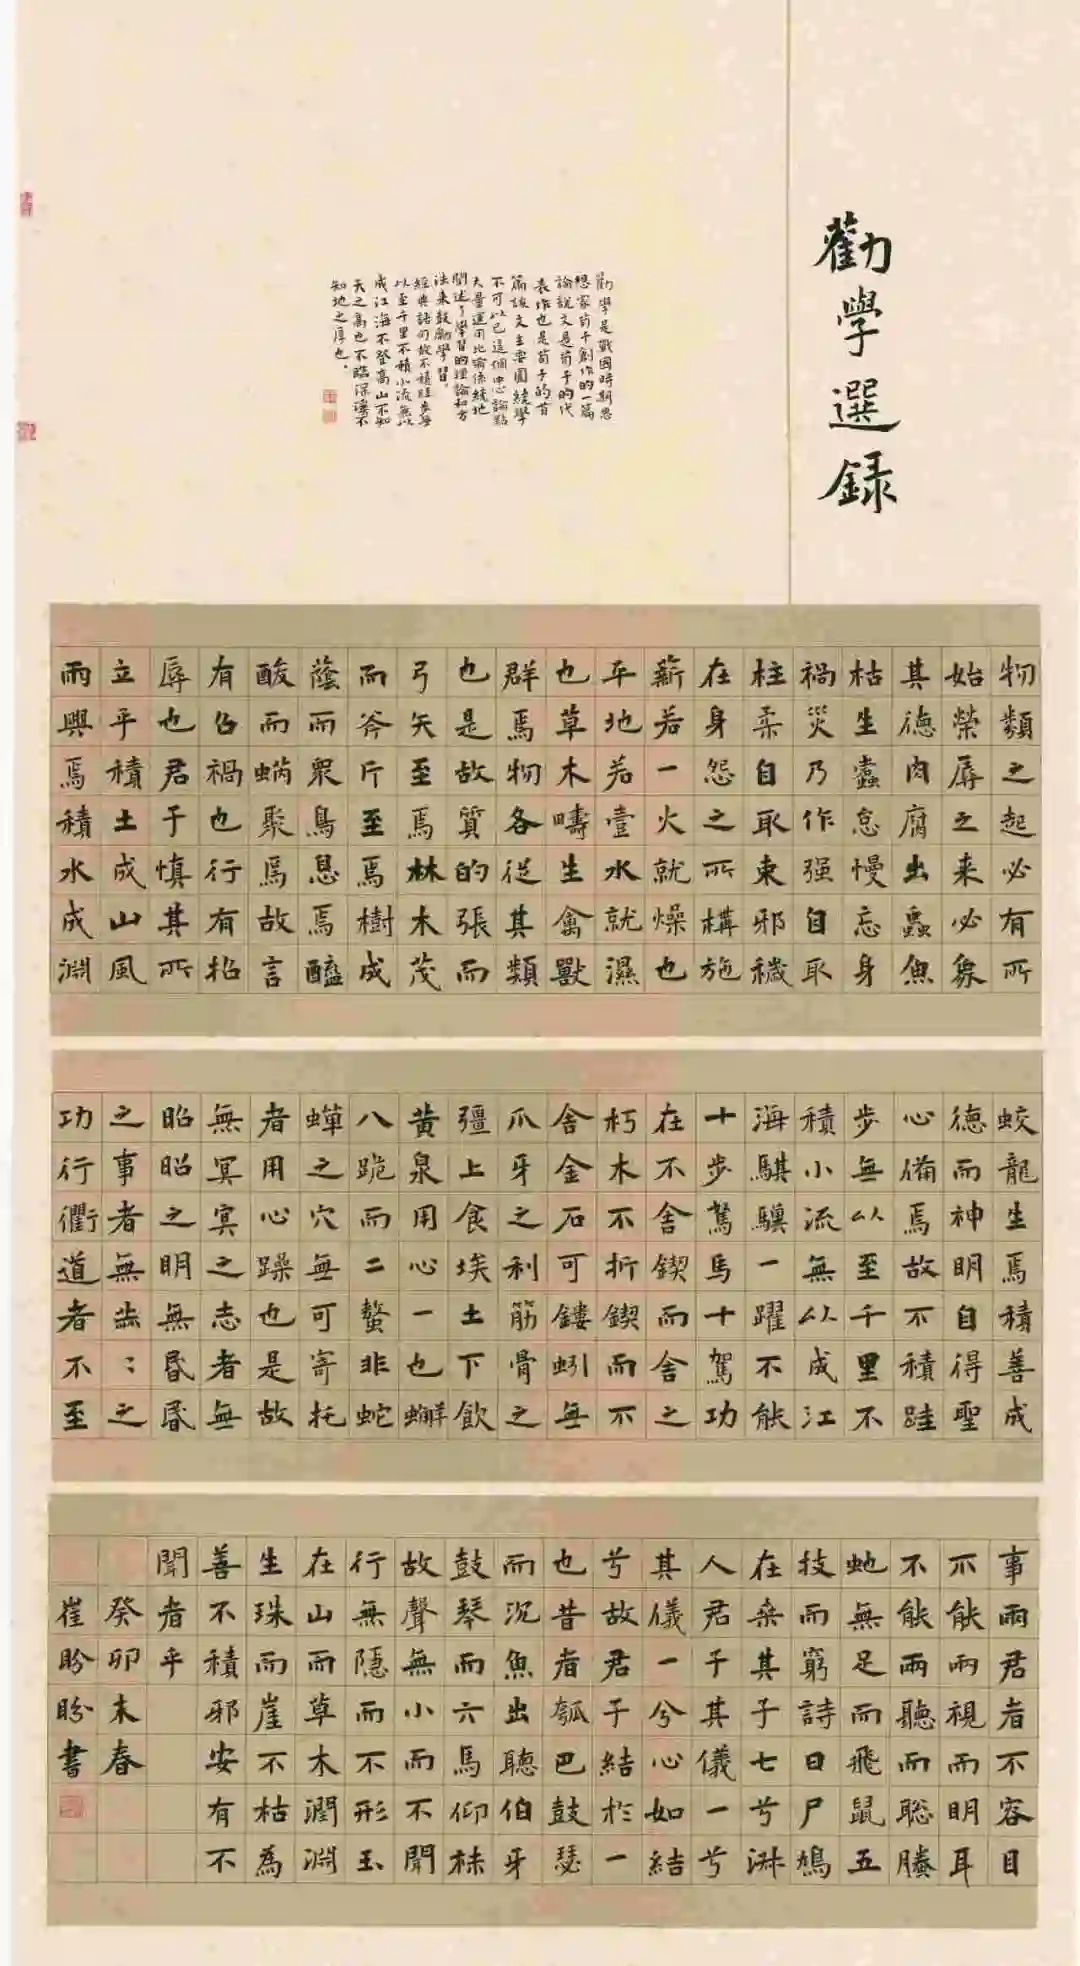 勸學選録
勸學是戰國時期思
想家荀子創作的一篇
論說文是荀子的代
表作也是荀子的首
篇該文主要圍繞學
不可以已這個中心論點
大量運用比喻係統地
闡述了學習的理論和方
法来鼓勵學習。
經典語句故不積跬步無
以至千里不積小流無以
成江海不登高山不知
天之高也不臨深溪不
知地之厚也。
物類之起必有所
始榮辱之来必象
其德肉腐出蟲魚
枯生蠹怠慢忘身
禍災乃作强自取
柱柔自取束邪穢
在身怨之所構施
薪若一火就燥也
平地若壹水就濕
也草木疇生禽獸
群焉物各從其類
也是故質的張而
弓矢至焉林木茂
而斧斤至焉樹成
蔭而衆鳥息焉醯
酸而蜹聚焉故言
有召禍也行有招
辱也君子慎其所
立乎積土成山風
雨興焉積水成淵
蛟龍生焉積善成
德而神明自得聖
心備焉故不積跬
步無以至千里不
積小流無以成江
海騏驥一躍不能
十步駑馬十駕功
在不舍鍥而舍之
朽木不折鍥而不
舍金石可鏤蚓無
爪牙之利筋骨之
彊上食埃土下飲
黄泉用心一也蠏
八跪而二螯非蛇
蟬之穴無可寄托
者用心躁也是故
無冥冥之志者無
昭昭之明無昏昏
之事者無
之
功行衢道者不至
事兩君者不容目
不能兩視而明耳
不能兩聽而聡螣
虵無足而飛鼠五
技而窮詩曰尸鳩
在桑其子七兮淑
人君子其儀一兮
其儀一兮心如結
兮故君子結於一
也昔者瓠巴鼓瑟
而沉魚出聽伯牙
鼓琴而六馬仰秣
故聲無小而不聞
行無隱而不形玉
在山而草木潤淵
生珠而崖不枯為
善不積邪安有不
聞者乎
癸卯末春
崔盼盼書